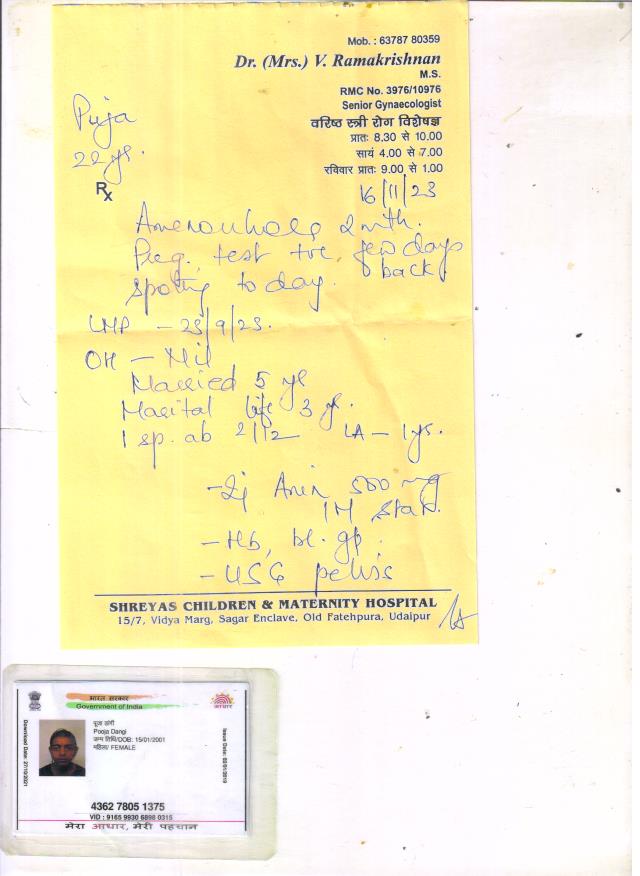 Mob. : 63787 80359
Dr. (Mrs.) V. Ramakrishnan
M.S.
RMC No. 3976/10976
Senior Gynaecologist
वरिष्ठ स्त्री रोग विशेषज्ञ
प्रातः 8.30 से 10.00
सायं 4.00 से 7.00
रविवार प्रातः 9.00 से 1.00
Puja
22 yr.
Rx
16/11/23
2 mth.
Preg. test +ve few days
back
spoting today.
LMP - 23/9/23.
OH - Nil
Married 5 yr
Marital life 3 yr.
1 sp. ab 2/12 LA - 1 yr.
- Inj 500 mg
IM Stat.
- Hb, bl. gp.
- USG pelvis
SHREYAS CHILDREN & MATERNITY HOSPITAL
15/7, Vidya Marg, Sagar Enclave, Old Fatehpura, Udaipur
भारत सरकार
Government of India
आधार
Download Date: 27/10/2021
पूजा डांगी
Pooja Dangi
जन्म तिथि/DOB: 15/01/2001
महिला/ FEMALE
Issue Date: 02/01/2019
4362 7805 1375
VID : 9165 9930 6898 0315
मेरा आधार, मेरी पहचान